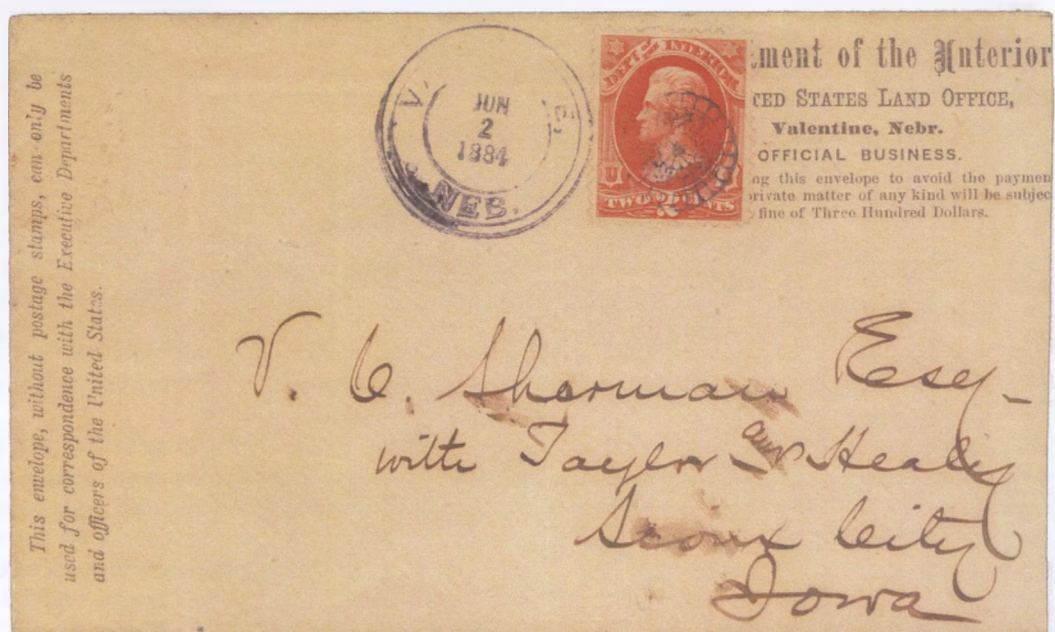 This envelope, without postage stamps, can only be
used for correspondence with the Executive Departments
and officers of the United States.
V. E.
JUN
2
1884
NEB.
DEPT. OF INTERIOR
U
TWO CENTS
2
ment of the Interior
TED STATES LAND OFFICE,
Valentine, Nebr.
OFFICIAL BUSINESS.
ng this envelope to avoid the paymen
private matter of any kind will be subjec
fine of Three Hundred Dollars.
V. C. Sherman Esq
with Taylor and Healey
Sioux City
Iowa